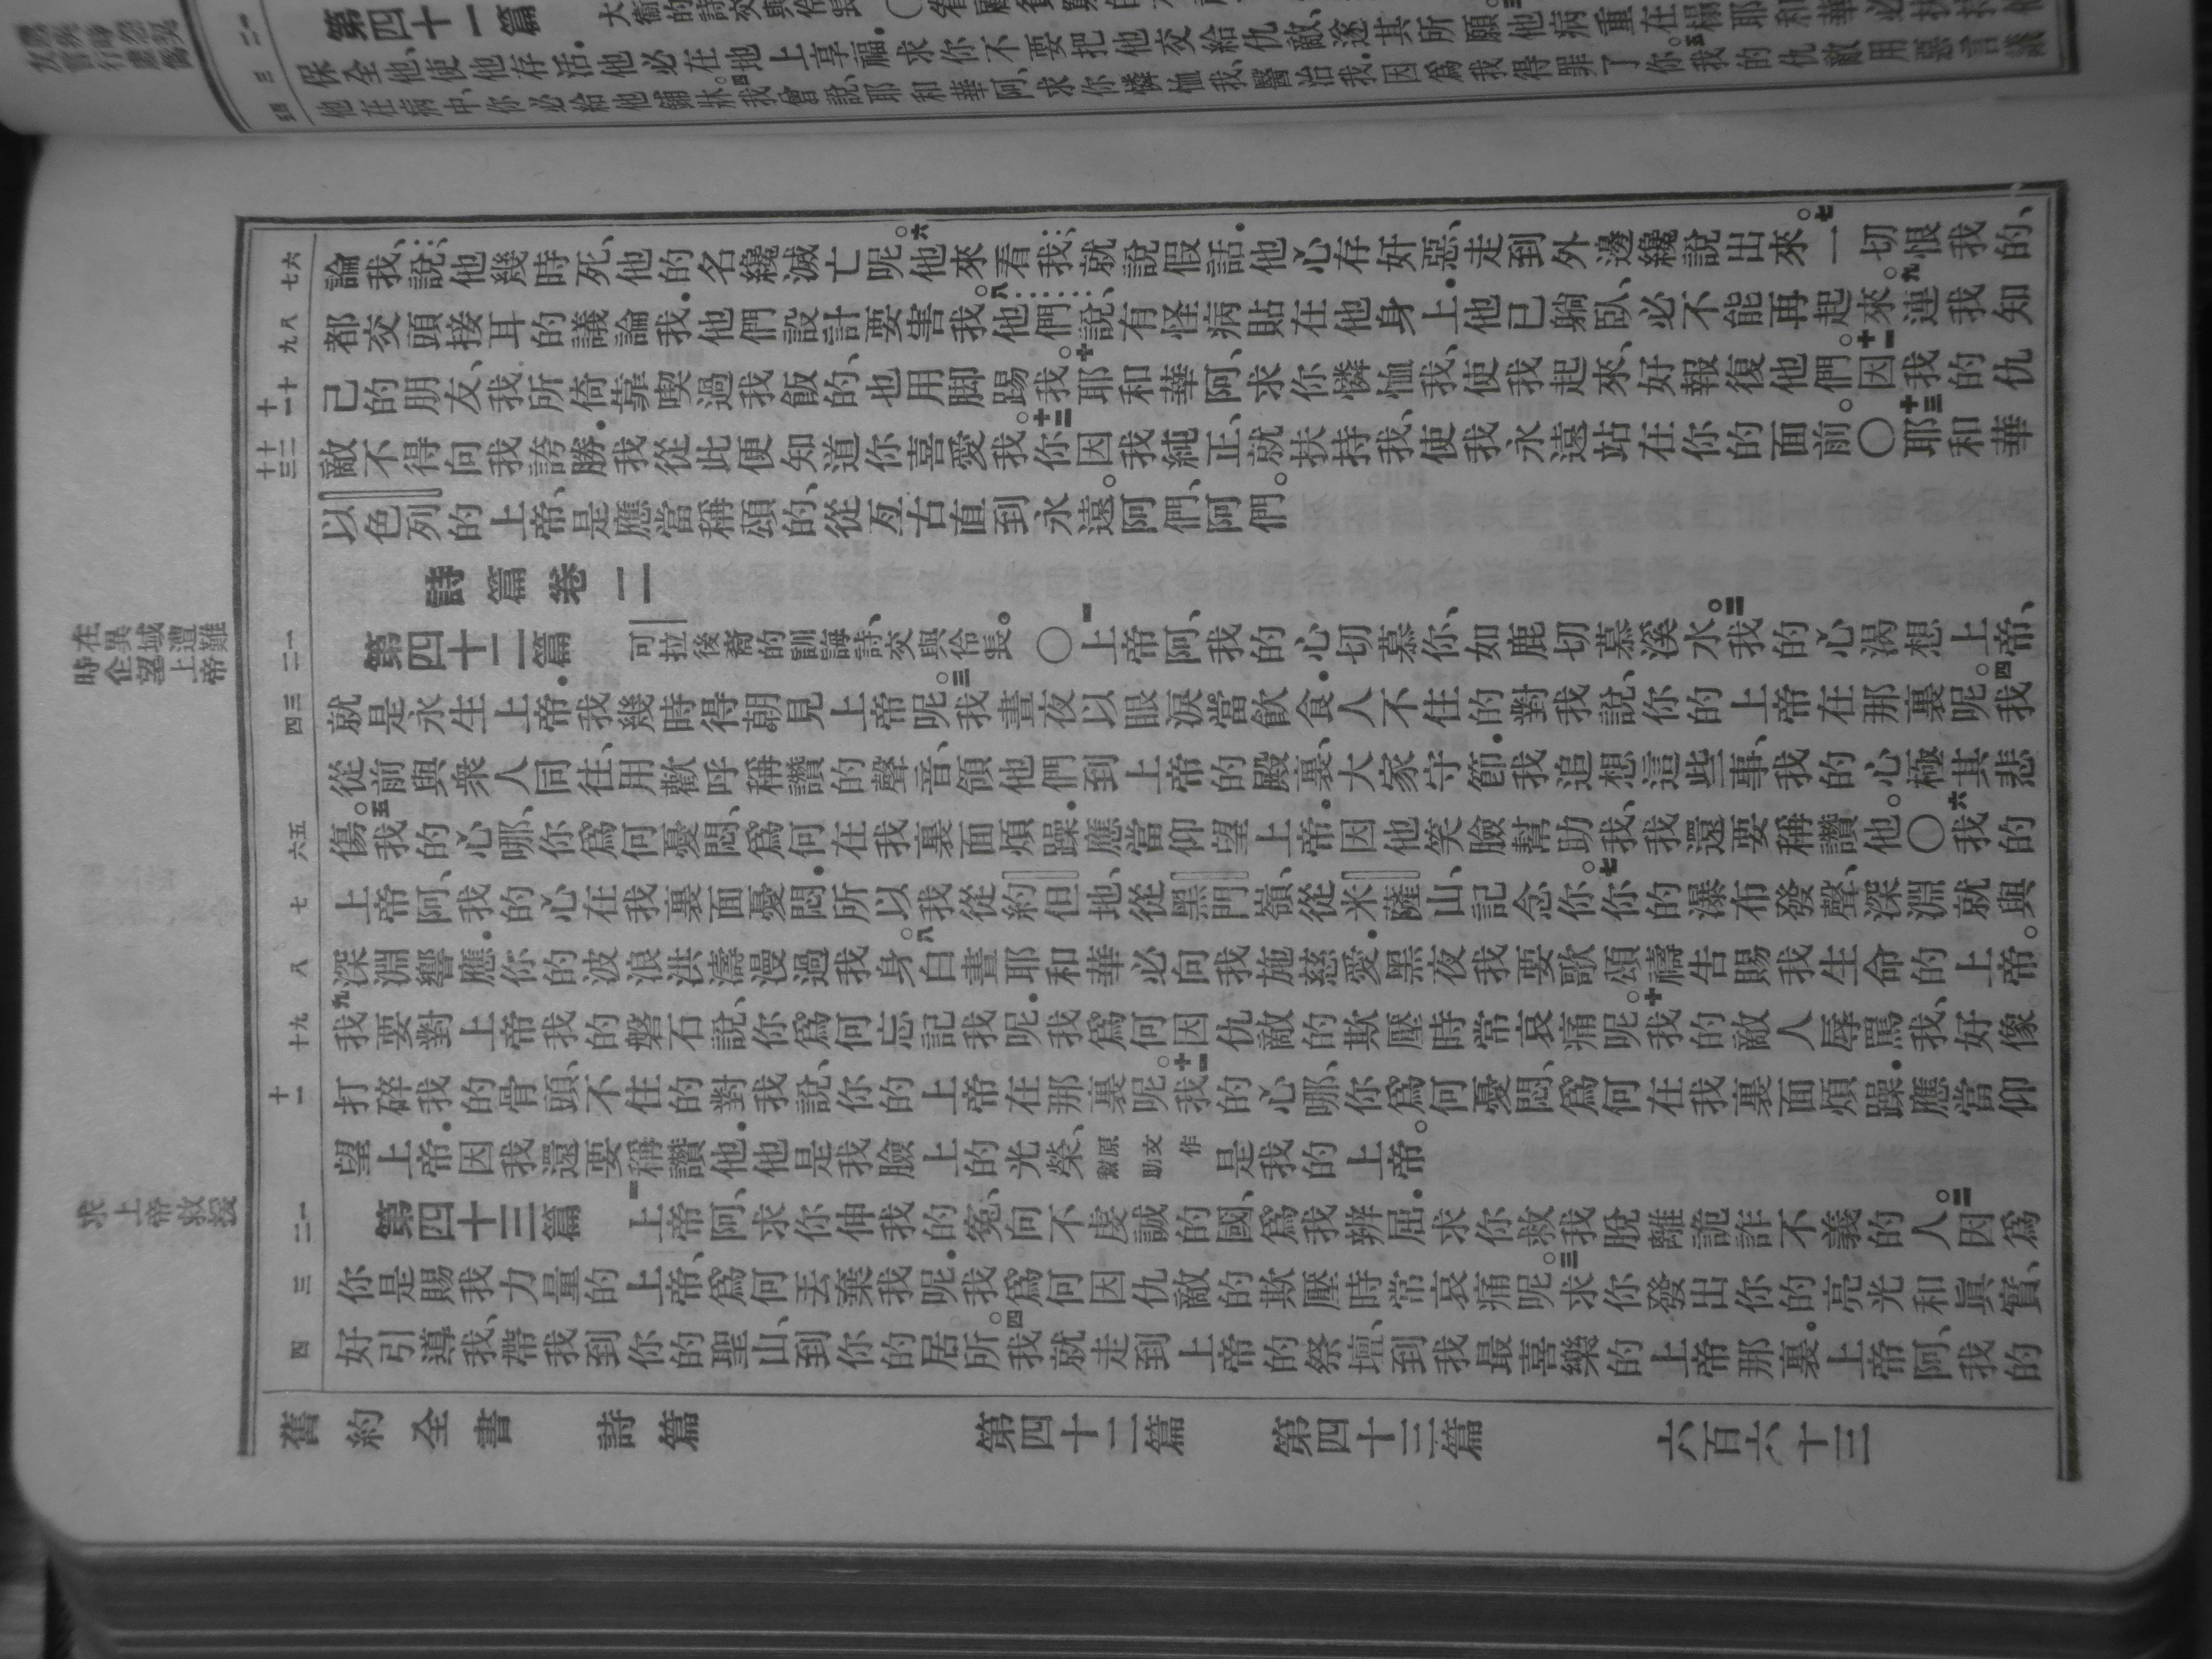 第四十一篇
保全他、使他存活．他必在地上享福．求你不要把他交給仇敵、遂其所願。
我曾說、耶和華阿、求你憐恤我、醫治我．因爲我得罪了你。五我的仇敵用惡言議
論我、說：他幾時死、他的名纔滅亡呢。六他來看我：就說假話．他心存奸惡、走到外邊纔說出來。七一切恨我的、
都交頭接耳的議論我．他們設計要害我。八他們說、有怪病貼在他身上．他已躺臥、必不能再起來。九連我知
己的朋友、我所倚靠喫過我飯的、也用脚踢我。十耶和華阿、求你憐恤我、使我起來、好報復他們。十一因我的仇
敵不得向我誇勝．我從此便知道你喜愛我。十二你因我純正、就扶持我、使我永遠站在你的面前。〇十三耶和華
以色列的上帝、是應當稱頌的、從亙古直到永遠。阿們、阿們。
詩篇卷二
第四十二篇 可拉後裔的訓誨詩、交與伶長。〇一上帝阿、我的心切慕你、如鹿切慕溪水。二我的心渴想上帝、
就是永生上帝．我幾時得朝見上帝呢。三我晝夜以眼淚當飲食．人不住的對我說、你的上帝在那裏呢。四我
從前與衆人同往、用歡呼稱讚的聲音、領他們到上帝的殿裏、大家守節．我追想這些事、我的心極其悲
傷。五我的心哪、你爲何憂悶、爲何在我裏面煩躁．應當仰望上帝．因他笑臉幫助我、我還要稱讚他。〇六我的
上帝阿、我的心在我裏面憂悶．所以我從約但地、從黑門嶺、從米薩山、記念你。七你的瀑布發聲、深淵就與
深淵響應．你的波浪洪濤漫過我身。八白晝耶和華必向我施慈愛．黑夜我要歌頌禱告賜我生命的上帝。
九我要對上帝我的磐石說、你爲何忘記我呢．我爲何因仇敵的欺壓時常哀痛呢。十我的敵人辱罵我、好像
打碎我的骨頭、不住的對我說、你的上帝在那裏呢。十一我的心哪、你爲何憂悶、爲何在我裏面煩躁．應當仰
望上帝．因我還要稱讚他．他是我臉上的光榮、原文作幫助是我的上帝。
第四十三篇 一上帝阿、求你伸我的冤、向不虔誠的國、爲我辨屈．求你救我脫離詭詐不義的人。二因爲
你是賜我力量的上帝、爲何丟棄我呢．我爲何因仇敵的欺壓時常哀痛呢。三求你發出你的亮光和眞實、
好引導我、帶我到你的聖山、到你的居所。四我就走到上帝的祭壇、到我最喜樂的上帝那裏．上帝阿、我的
舊約全書 詩篇 第四十二篇 第四十三篇 六百六十三
在異域遭難
時企望上帝
求上帝救援